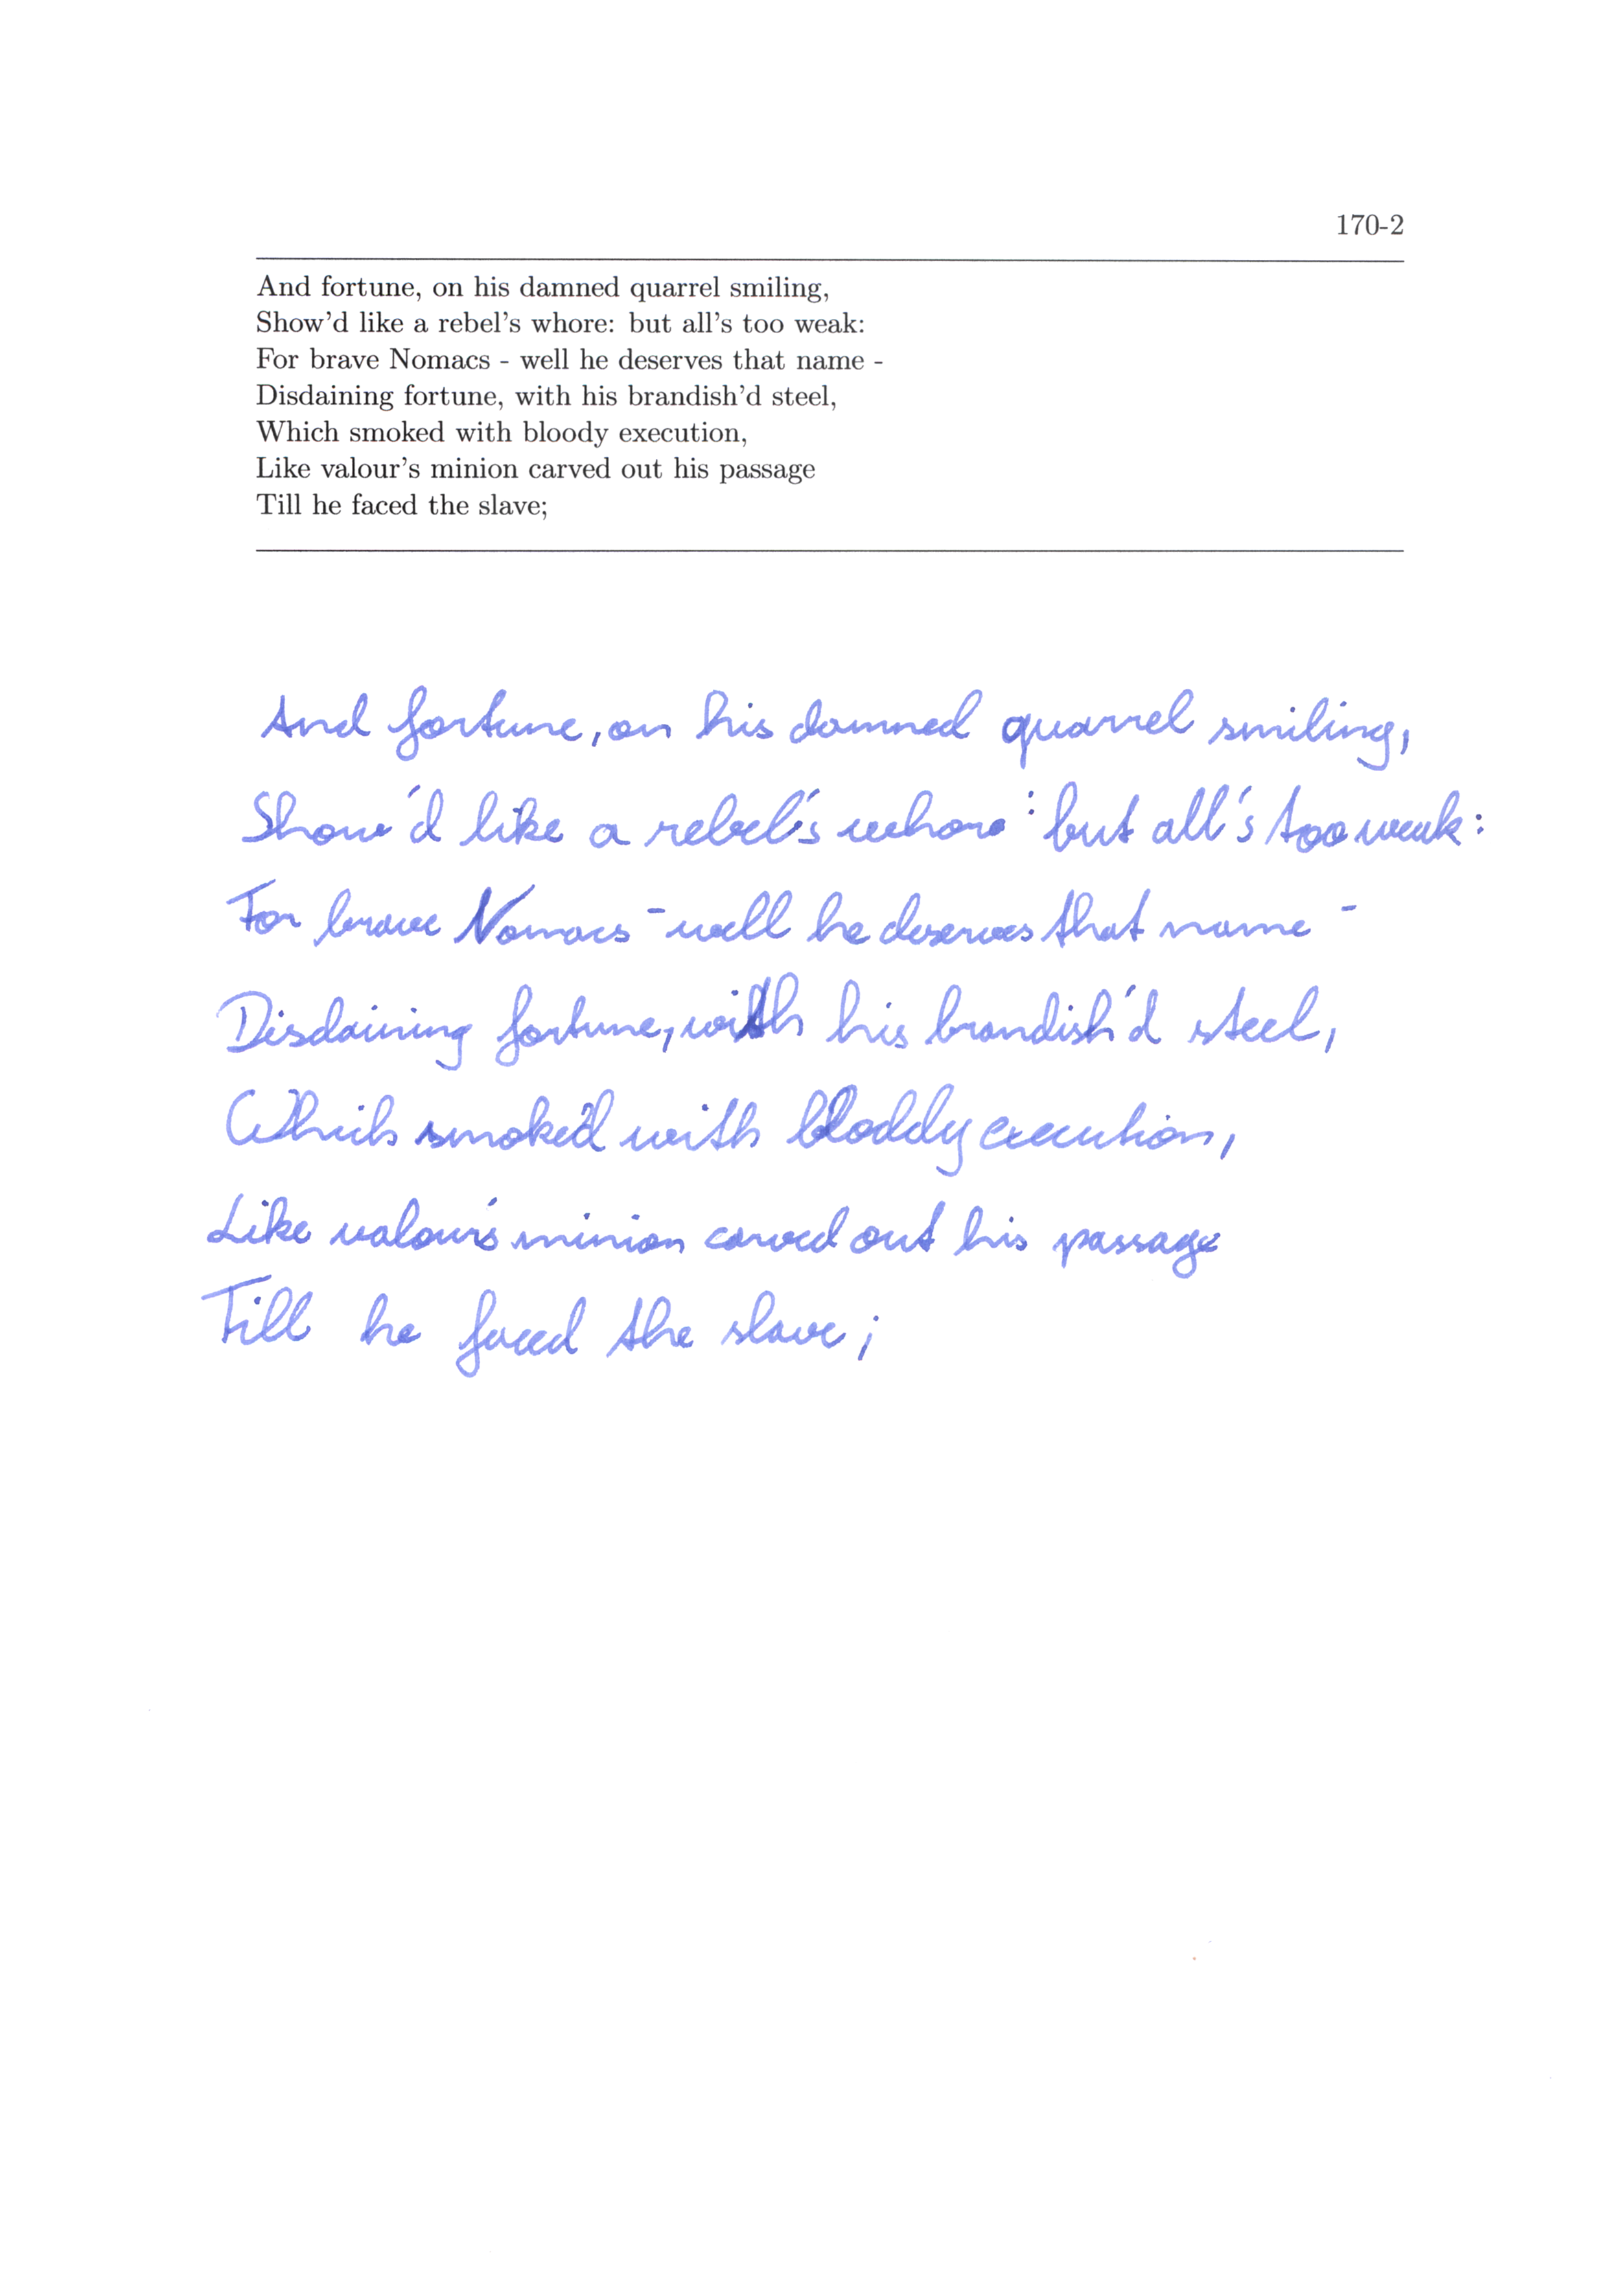 170-2
And fortune, on his damned quarrel smiling,
Show'd like a rebel's whore: but all's too weak:
For brave Nomacs - well he deserves that name -
Disdaining fortune, with his brandish'd steel,
Which smoked with bloody execution,
Like valour's minion carved out his passage
Till he faced the slave;
And fortune, on his damned quarrel smiling,
Show'd like a rebel's whore : but all's too weak:
For brave Nomacs - well he deserves that name -
Disdaining fortune, with his brandish'd steel,
Which smoke'd with bloddy execution,
Like valour's minion carved out his passage
Till he faced the slave;